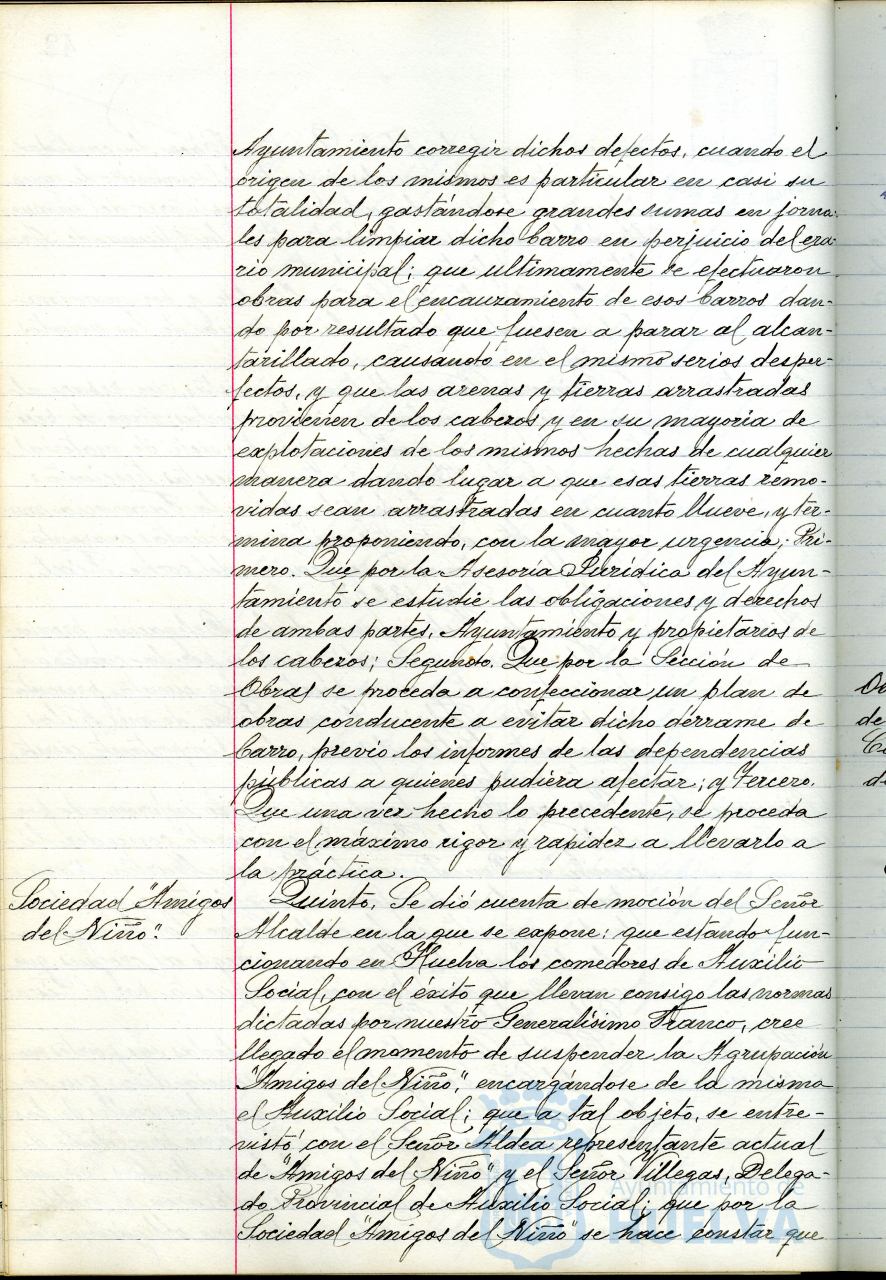 Ayuntamiento corregir dichos defectos, cuando el
origen de los mismos es particular en casi su
totalidad, gastándose grandes sumas en jorna-
les para limpiar dicho barro en perjuicio del era-
rio municipal; que ultimamente se efectuaron
obras para el encauzamiento de esos barros dan-
do por resultado que fuesen a parar al alcan-
tarillado, causando en el mismo serios desper-
fectos, y que las arenas y tierras arrastradas
provienen de los cabezos y en su mayoría de
explotaciones de los mismos hechas de cualquier
manera dando lugar a que esas tierras remo-
vidas sean arrastradas en cuanto llueve, y ter-
mina proponiendo, con la mayor urgencia: Pri-
mero. Que por la Asesoría Jurídica del Ayun-
tamiento se estudie las obligaciones y derechos
de ambas partes, Ayuntamiento y propietarios de
los cabezos; Segundo. Que por la Sección de
Obras se proceda a confeccionar un plan de
obras conducente a evitar dicho derrame de
barro, previo los informes de las dependencias
públicas a quienes pudiera afectar; y Tercero.
Que una vez hecho lo precedente, se proceda
con el máximo rigor y rapidez a llevarlo a
la práctica.
Sociedad "Amigos
del Niño".
Quinto. Se dió cuenta de moción del Señor
Alcalde en la que se expone: que estando fun-
cionando en Huelva los comedores de Auxilio
Social, con el éxito que llevan consigo las normas
dictadas por nuestro Generalísimo Franco, cree
llegado el momento de suspender la Agrupación
"Amigos del Niño", encargándose de la misma
el Auxilio Social; que a tal objeto, se entre-
vistó con el Señor Aldea representante actual
de "Amigos del Niño" y el Señor Villegas, Delega-
do Provincial de Auxilio Social; que por la
Sociedad "Amigos del Niño" se hace constar que
Ayuntamiento de
HUELVA